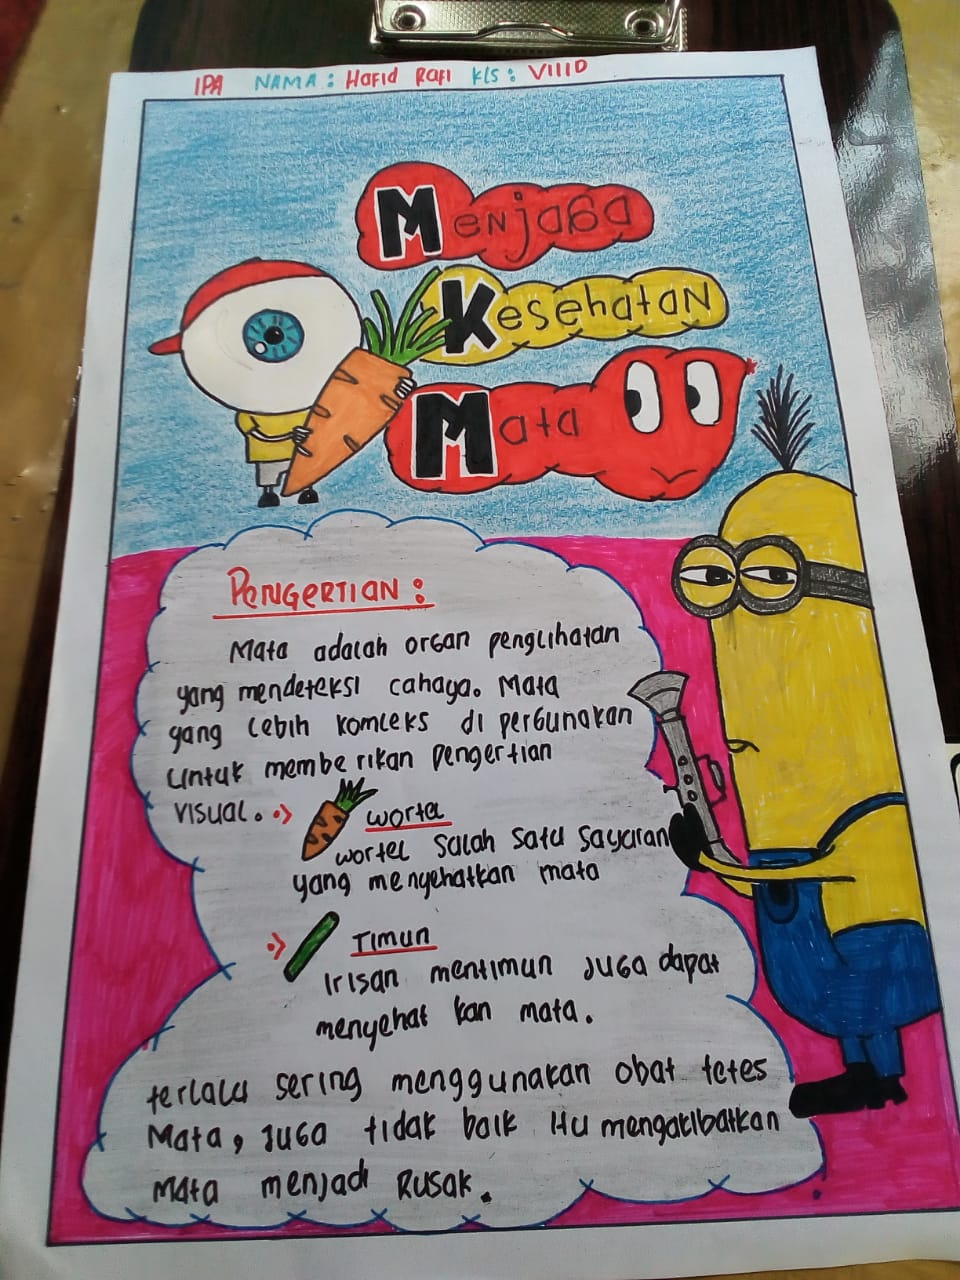 IPA NAMA : Hafid Rafi Kls : VIIID
Menjaga
Kesehatan
Mata
PENGERTIAN :
Mata adalah organ penglihatan
yang mendeteksi cahaya. Mata
yang lebih komleks di pergunakan
untuk membe rikan pengertian
visual.
wortel
wortel salah satu sayuran
yang menyehatkan mata
Timun
Irisan mentimun juga dapat
menyehat kan mata.
terlalu sering menggunakan obat tetes
Mata, juga tidak baik itu mengakibatkan
Mata menjadi Rusak.